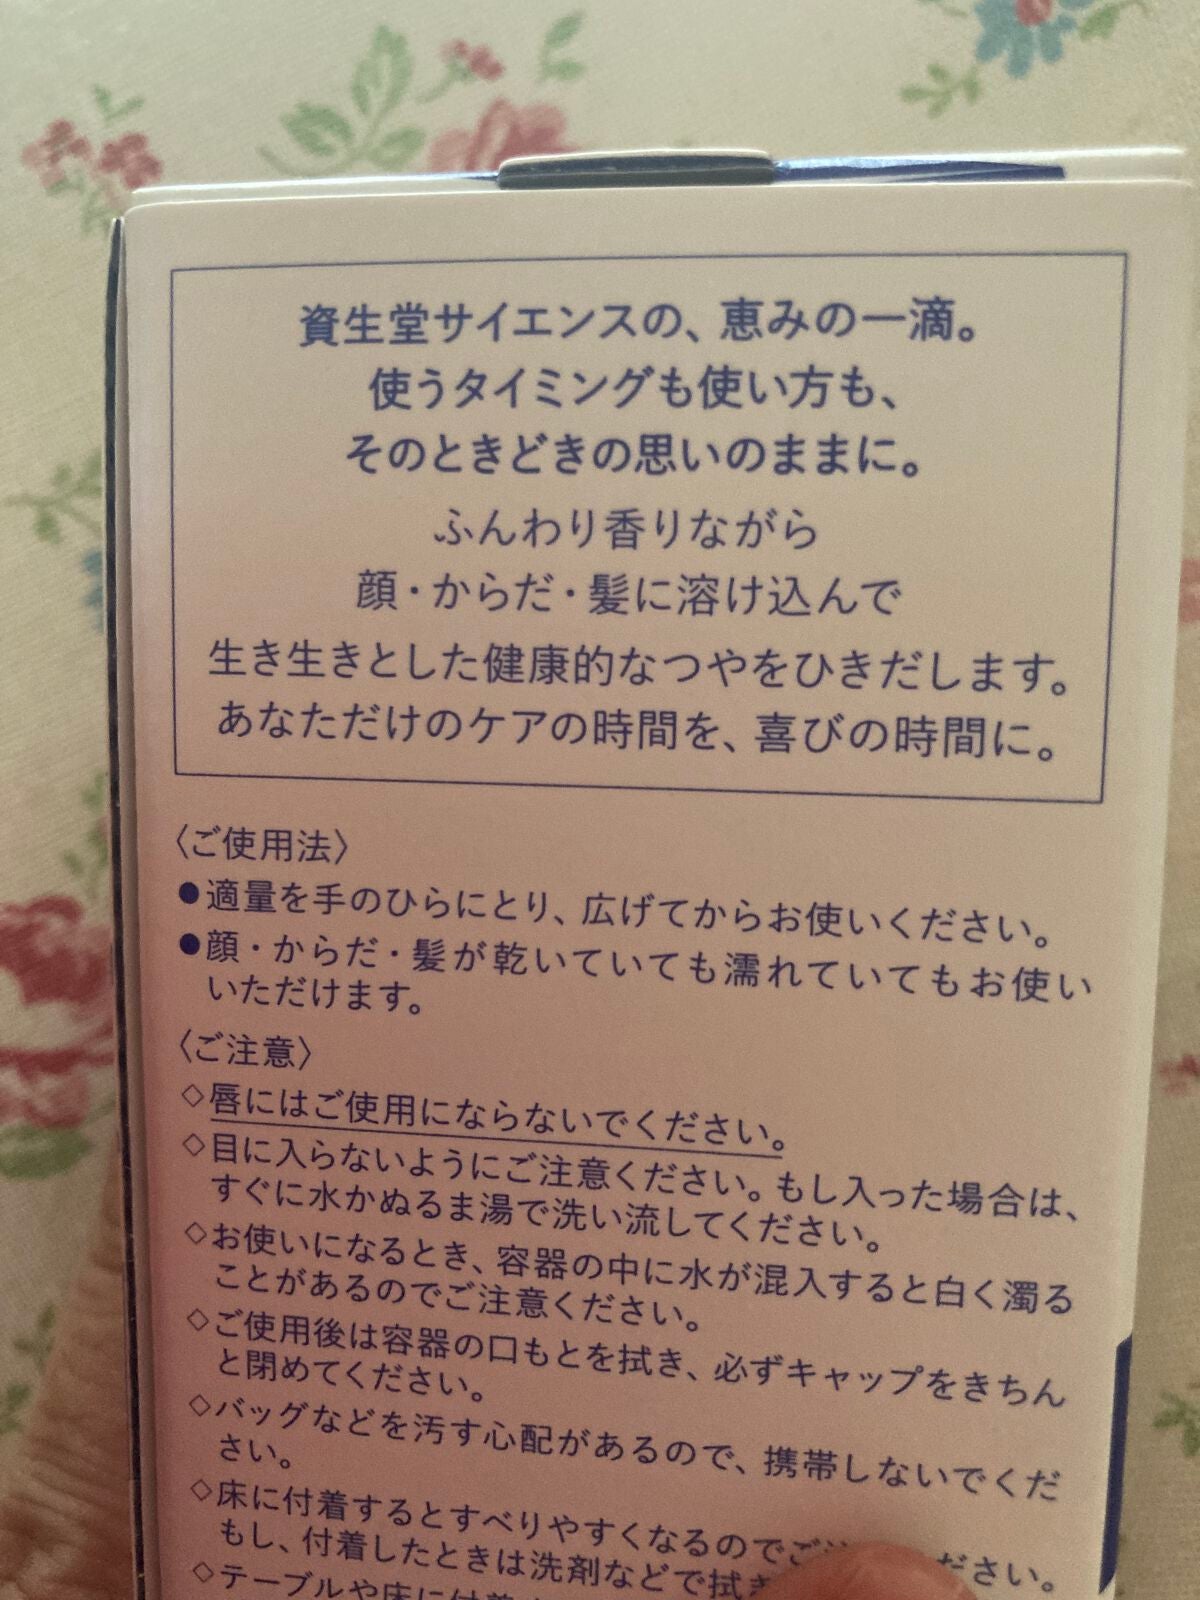 資生堂サイエンスの、恵みの一滴。
使うタイミングも使い方も、
そのときどきの思いのままに。
ふんわり香りながら
顔・からだ・髪に溶け込んで
生き生きとした健康的なつやをひきだします。
あなただけのケアの時間を、喜びの時間に。
〈ご使用法〉
●適量を手のひらにとり、広げてからお使いください。
●顔・からだ・髪が乾いていても濡れていてもお使い
いただけます。
〈ご注意〉
◇唇にはご使用にならないでください。
◇目に入らないようにご注意ください。もし入った場合は、
すぐに水かぬるま湯で洗い流してください。
◇お使いになるとき、容器の中に水が混入すると白く濁る
ことがあるのでご注意ください。
◇ご使用後は容器の口もとを拭き、必ずキャップをきちん
と閉めてください。
◇バッグなどを汚す心配があるので、携帯しないでくだ
さい。
◇床に付着するとすべりやすくなるのでご ださい。
もし、付着したときは洗剤などで拭き
◇テーブルや床に付着